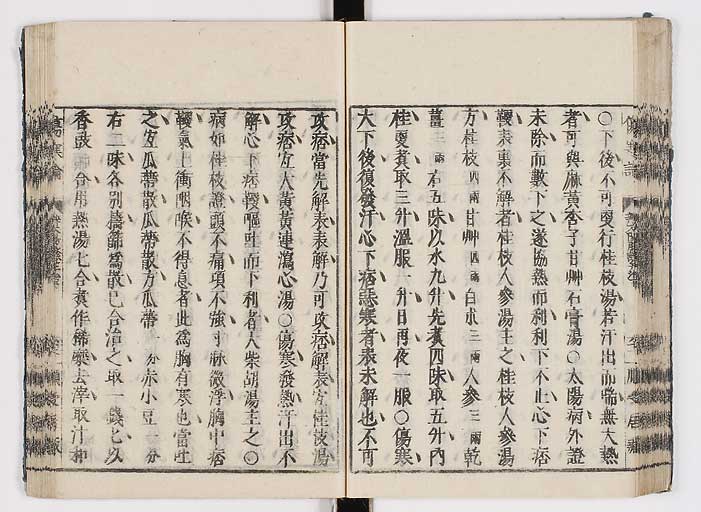 〇下後不可更行桂枝湯若汗出而喘無大熱
者可與麻黃杏子甘艸石膏湯〇太陽病外證
未除而數下之遂協熱而利利下不止心下痞
鞕表裏不解者桂枝人參湯主之桂枝人參湯
方桂枝四兩甘艸四兩白朮三兩人參三兩乾
薑三兩右五味以水九升先煑四味取五升內
桂更煑取三升溫服一升日再夜一服〇傷寒
大下後復發汗心下痞惡寒者表未解也不可
攻痞當先解表表解乃可攻痞解表宜桂枝湯
攻痞宜大黃黃連瀉心湯〇傷寒發熱汗出不
解心下痞鞕嘔吐而下利者大柴胡湯主之〇
病如桂枝證頭不痛項不強寸脉微浮胸中痞
鞕氣上衝咽喉不得息者此爲胸有寒也當吐
之宜瓜蔕散瓜蔕散方瓜蔕一分赤小豆一分
右二味各別擣篩爲散已合治之取一錢匕以
香豉一合用熱湯七合煑作稀糜去滓取汁和
傷寒論